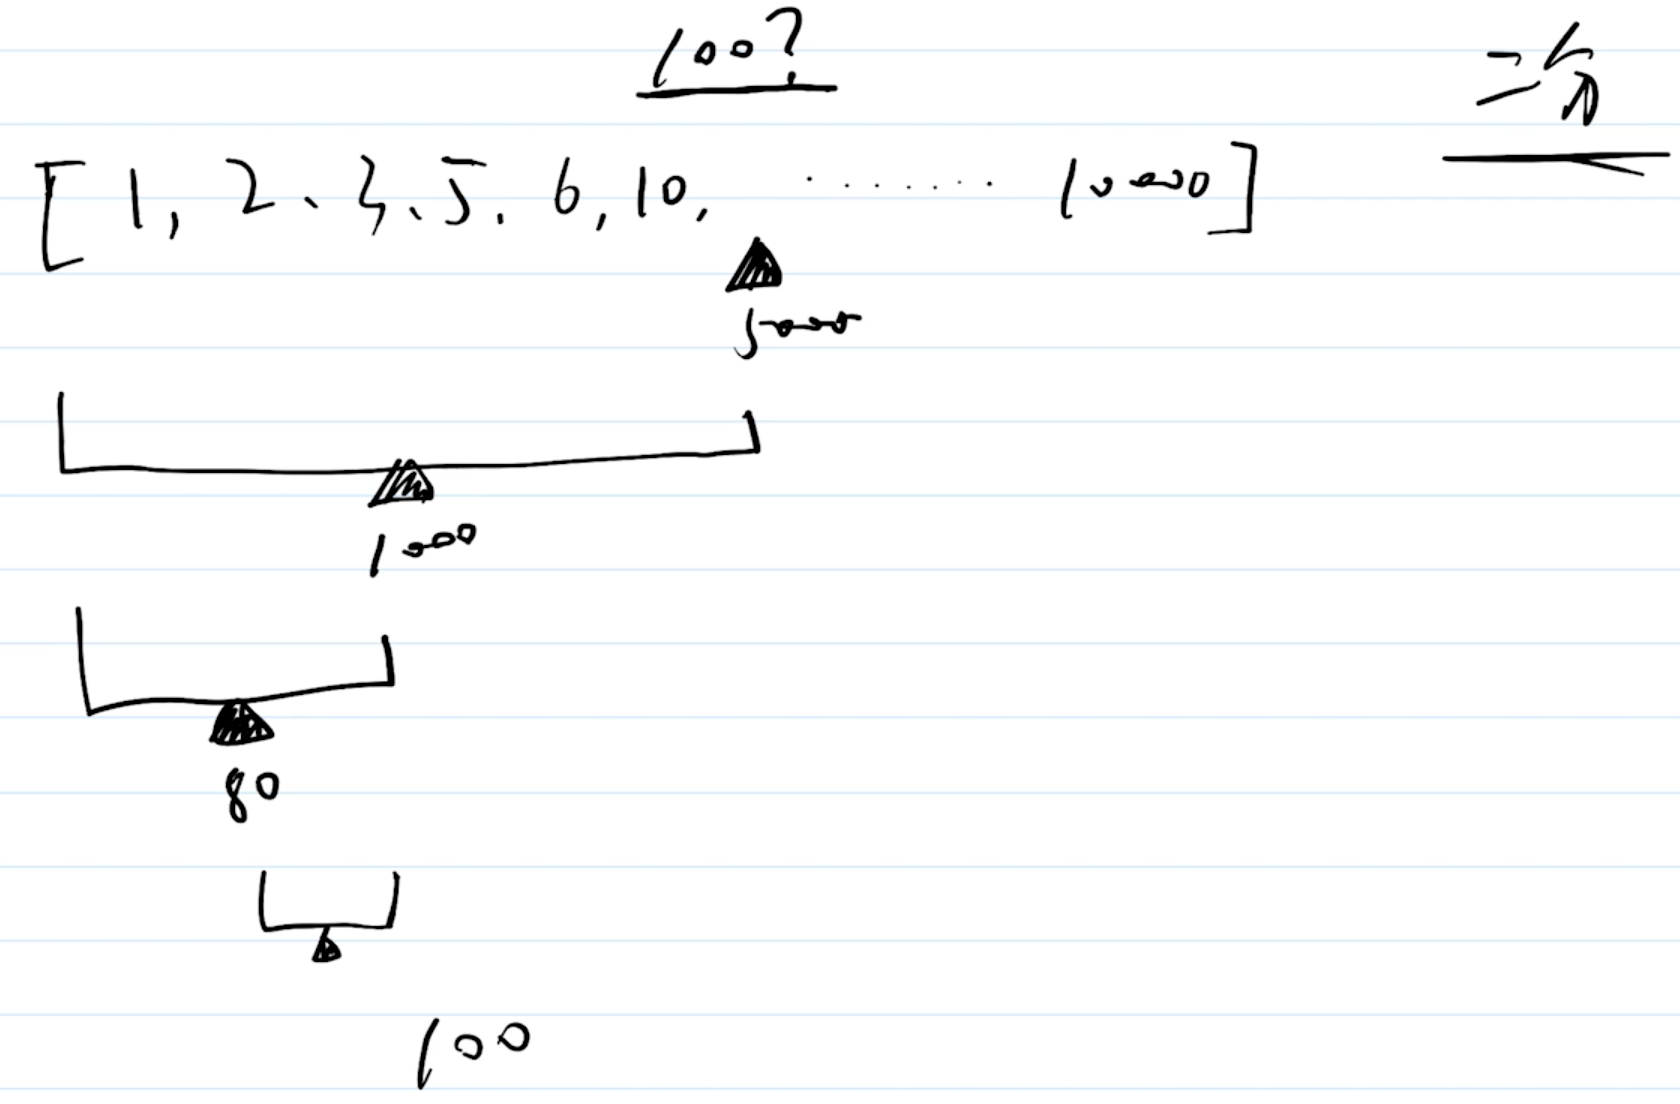 100?
二分
[1, 2、3、5、6, 10, ....... 10000]
5000
1000
80
100